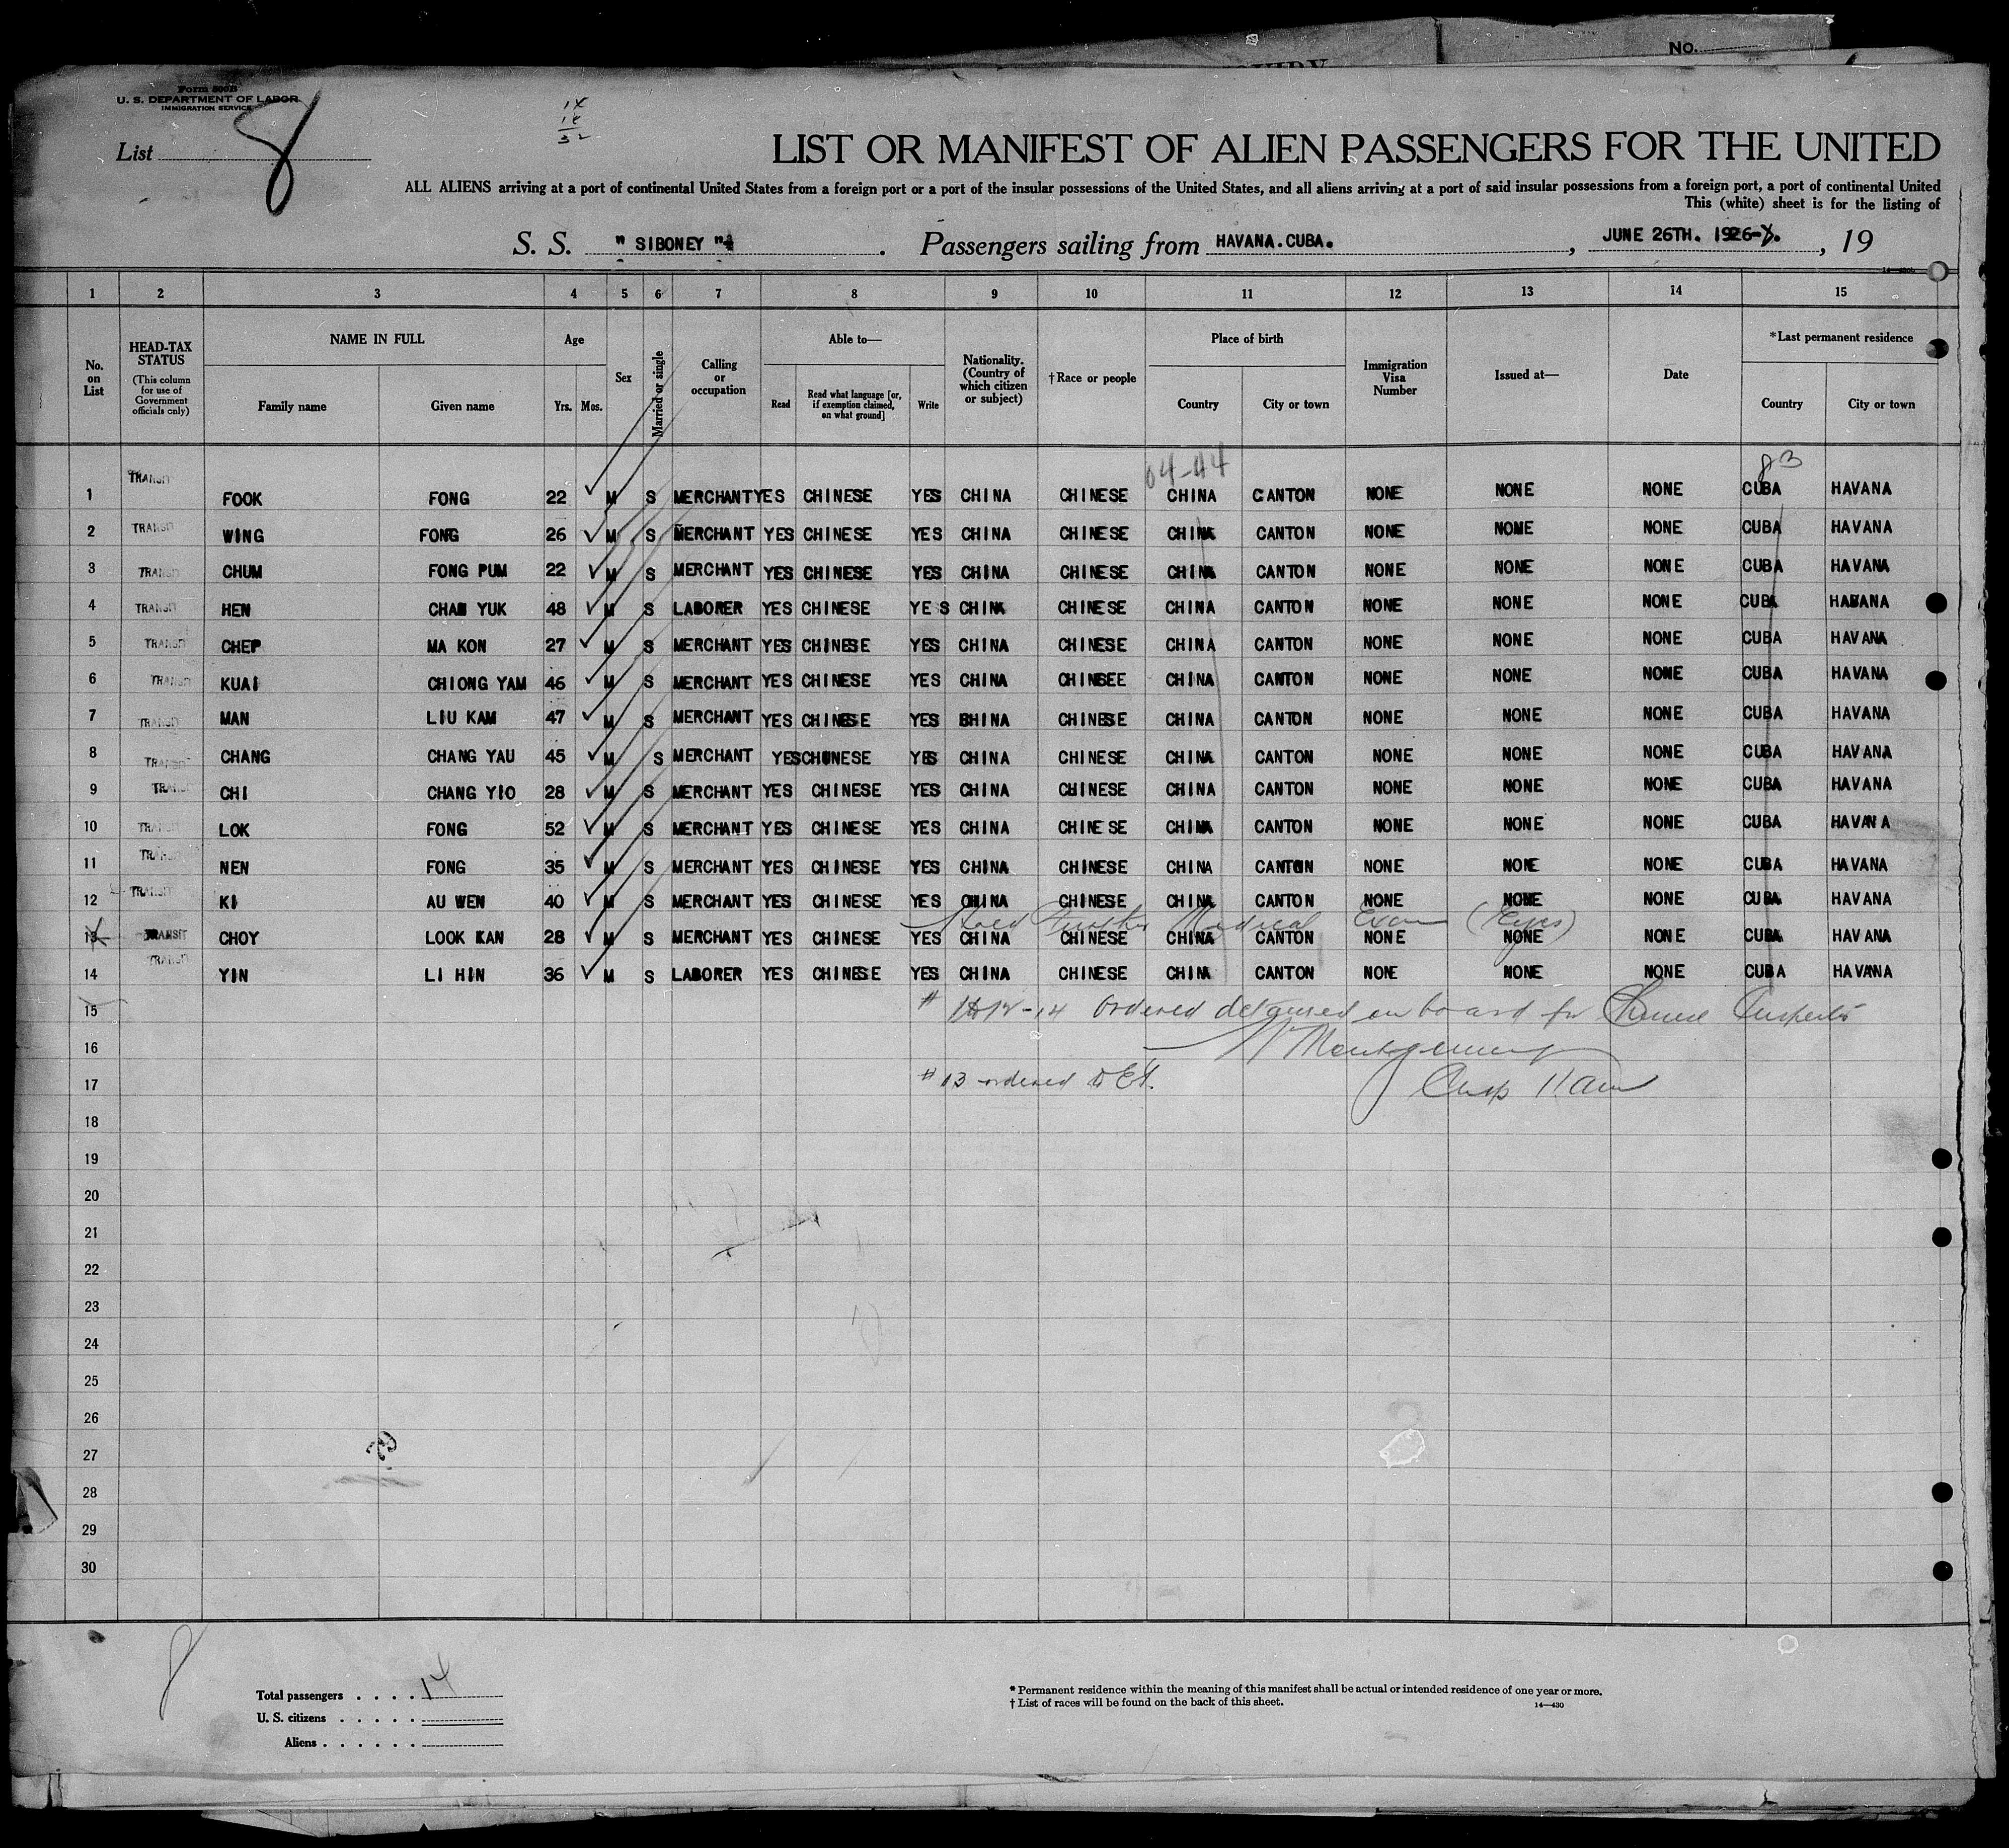 No.
Form 500B
U. S. DEPARTMENT OF LABOR
IMMIGRATION SERVICE
List 8
LIST OR MANIFEST OF ALIEN PASSENGERS FOR THE UNITED
ALL ALIENS arriving at a port of continental United States from a foreign port or a port of the insular possessions of the United States, and all aliens arriving at a port of said insular possessions from a foreign port, a port of continental United
This (white) sheet is for the listing of
S. S. " SIBONEY " . Passengers sailing from HAVANA.CUBA. , JUNE 26TH. 1926 , 19
1 2 3 4 5 6 7 8 9 10 11 12 13 14 15
No. on List HEAD-TAX STATUS (This column for use of Government officials only) NAME IN FULL Family name Given name Age Yrs. Mos. Sex Married or single Calling or occupation Able to— Read Read what language [or, if exemption claimed, on what ground] Write Nationality. (Country of which citizen or subject) †Race or people Place of birth Country City or town Immigration Visa Number Issued at— Date *Last permanent residence Country City or town
04-44 83
1 TRANSIT FOOK FONG 22 M S MERCHANT YES CHINESE YES CHINA CHINESE CHINA CANTON NONE NONE NONE CUBA HAVANA
2 TRANSIT WING FONG 26 M S MERCHANT YES CHINESE YES CHINA CHINESE CHINA CANTON NONE NONE NONE CUBA HAVANA
3 TRANSIT CHUM FONG PUM 22 M S MERCHANT YES CHINESE YES CHINA CHINESE CHINA CANTON NONE NONE NONE CUBA HAVANA
4 TRANSIT HEN CHAN YUK 48 M S LABORER YES CHINESE YES CHINA CHINESE CHINA CANTON NONE NONE NONE CUBA HAVANA
5 TRANSIT CHEP MA KON 27 M S MERCHANT YES CHINESE YES CHINA CHINESE CHINA CANTON NONE NONE NONE CUBA HAVANA
6 TRANSIT KUAI CHIONG YAM 46 M S MERCHANT YES CHINESE YES CHINA CHINSEE CHINA CANTON NONE NONE NONE CUBA HAVANA
7 TRANSIT MAN LIU KAM 47 M S MERCHANT YES CHINESE YES CHINA CHINESE CHINA CANTON NONE NONE NONE CUBA HAVANA
8 TRANSIT CHANG CHANG YAU 45 M S MERCHANT YES CHINESE YES CHINA CHINESE CHINA CANTON NONE NONE NONE CUBA HAVANA
9 TRANSIT CHI CHANG YIO 28 M S MERCHANT YES CHINESE YES CHINA CHINESE CHINA CANTON NONE NONE NONE CUBA HAVANA
10 TRANSIT LOK FONG 52 M S MERCHANT YES CHINESE YES CHINA CHINESE CHINA CANTON NONE NONE NONE CUBA HAVANA
11 TRANSIT NEN FONG 35 M S MERCHANT YES CHINESE YES CHINA CHINESE CHINA CANTON NONE NONE NONE CUBA HAVANA
12 TRANSIT KI AU WEN 40 M S MERCHANT YES CHINESE YES CHINA CHINESE CHINA CANTON NONE NONE NONE CUBA HAVANA
Held Further Medical Exam (Eyes)
13 TRANSIT CHOY LOOK KAN 28 M S MERCHANT YES CHINESE YES CHINA CHINESE CHINA CANTON NONE NONE NONE CUBA HAVANA
14 TRANSIT YIN LI HIN 36 M S LABORER YES CHINESE YES CHINA CHINESE CHINA CANTON NONE NONE NONE CUBA HAVANA
15 ordered detained on board for Chinese
16 Montgomery
17 # 13 ordered to E.I. Insp
18
19
20
21
22
23
24
25
26
27
28
29
30
8
Total passengers . . . . 14
U. S. citizens . . . . .
Aliens . . . . . .
* Permanent residence within the meaning of this manifest shall be actual or intended residence of one year or more.
† List of races will be found on the back of this sheet.
14—430